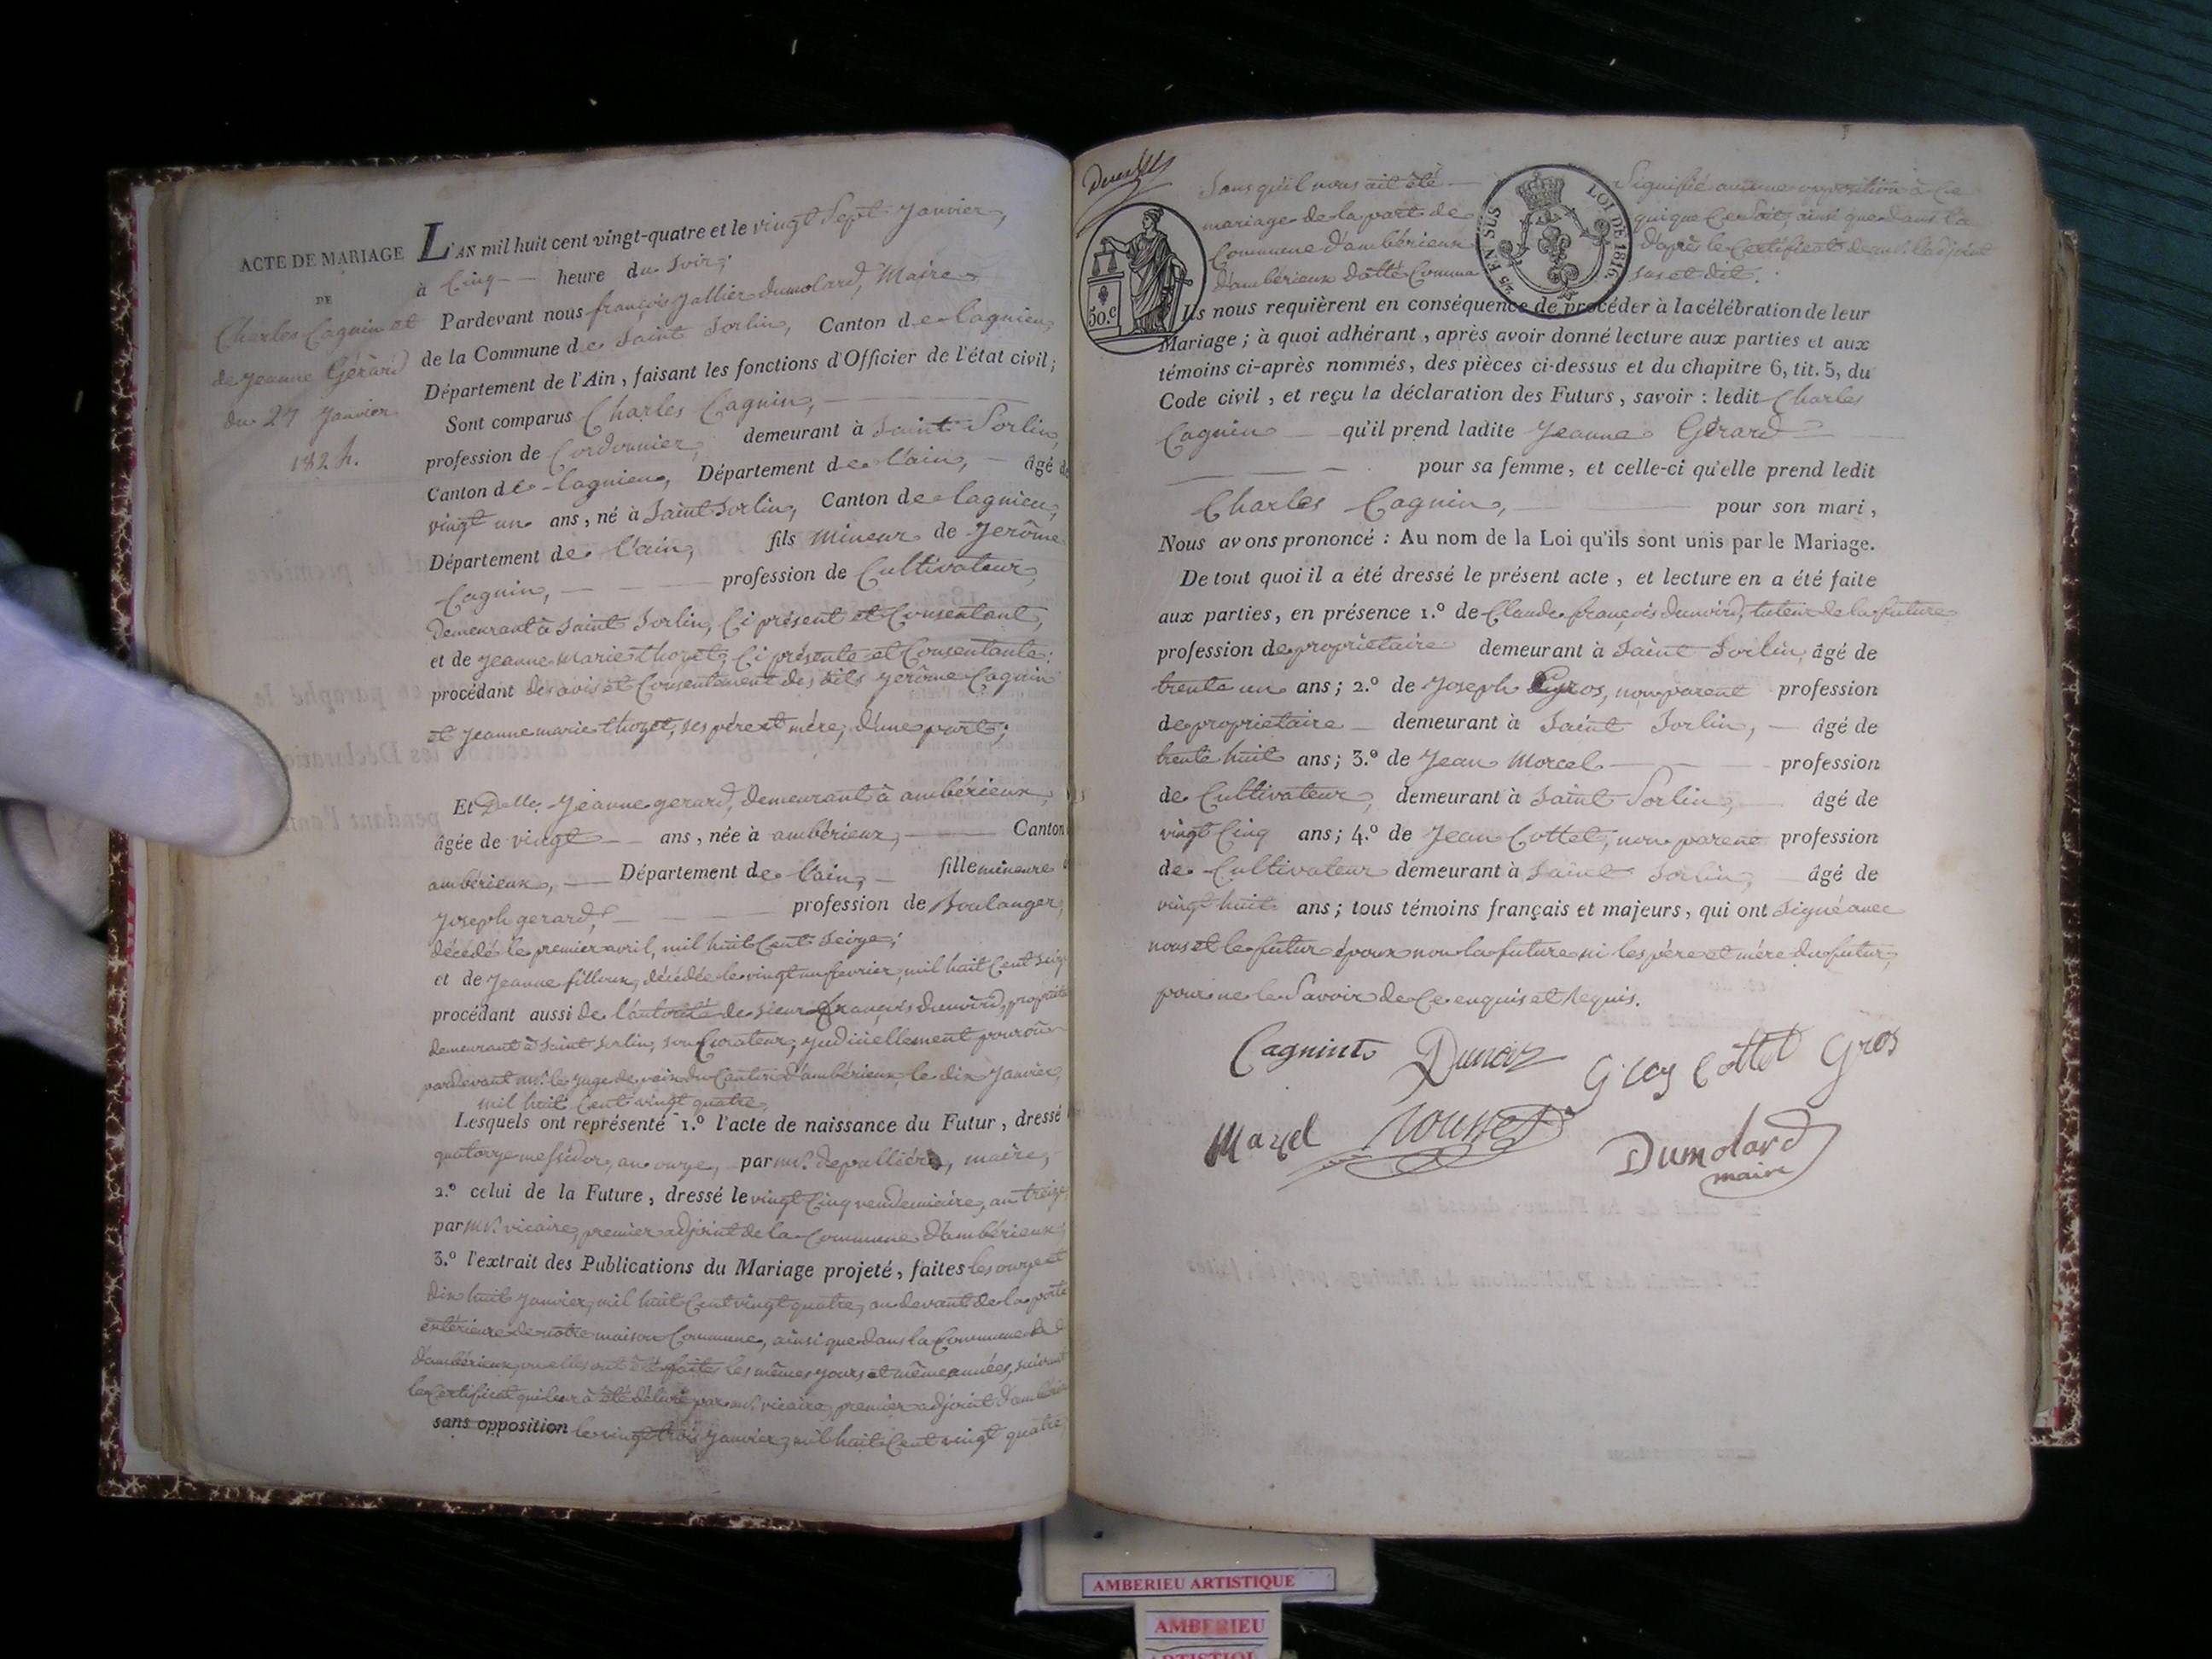 ACTE DE MARIAGE
DE
Charles Cagnin et
de Jeanne Gérard
du 27 Janvier
1824.
L'AN mil huit cent vingt-quatre et le vingt Sept Janvier,
à Cinq heure du Soir;
Pardevant nous françois Dumolard, Maire
de la Commune de Saint Sorlin, Canton de Lagnieu,
Département de l'Ain, faisant les fonctions d'Officier de l'état civil;
Sont comparus Charles Cagnin,
profession de Cordonnier, demeurant à Saint Sorlin,
Canton de Lagnieu, Département de l'ain, âgé de
vingt un ans, né à Saint Sorlin, Canton de Lagnieu,
Département de l'ain, fils mineur de Jerôme
Cagnin, profession de Cultivateur,
demeurant à Saint Sorlin, Ci présent et Consentant,
et de Jeanne Marie thoyet, Ci présente et Consentante:
procédant des avis et Consentement des dits Jerôme Cagnin
et Jeanne marie thoyet, ses père et mère, d'une part;
Et Delle. Jeanne gerard, demeurant à ambérieux,
âgée de vingt ans, née à ambérieux, Canton
ambérieux, Département de l'ain, fille mineure
Joseph gerard, profession de Boulanger,
décédé le premier avril, mil huit Cent Seize;
et de Jeanne filloux, décédée le vingt un fevrier, mil huit Cent
procédant aussi de l'autorité de sieur françois Dunoird,
demeurant à Saint Sorlin, son Curateur, Judiciellement
pardevant mr. le Juge de paix du Canton d'ambérieux, le dix Janvier,
mil huit Cent vingt quatre,
Lesquels ont représenté 1.º l'acte de naissance du Futur, dressé
quatorze messidor, an onze, par mr. depallière, maire,
2.º celui de la Future, dressé le vingt Cinq vendemiaire, an treize,
par mr. vicaire, premier adjoint de la Commune d'ambérieux,
3.º l'extrait des Publications du Mariage projeté, faites les onze et
dix huit Janvier, mil huit Cent vingt quatre, au devant de la porte
extérieure de notre maison Commune, ainsi que dans la Commune
d'ambérieux, ou elles ont été faites les mêmes jours et même années, suivant
le Certificat qui leur à été délivré par mr. vicaire, premier adjoint
sans opposition le vingt trois Janvier, mil huit Cent vingt quatre
50.c
EN SUS
LOI DE 1816.
Sans qu'il nous ait été Signifié aucune opposition à Ce
mariage de la part de qui que Ce Soit, ainsi que dans la
Commune d'ambérieux d'après le Certificat de mr. l'adjoint
d'ambérieux datté Comme sus et dit.
Ils nous requièrent en conséquence de procéder à la célébration de leur
Mariage; à quoi adhérant, après avoir donné lecture aux parties et aux
témoins ci-après nommés, des pièces ci-dessus et du chapitre 6, tit. 5, du
Code civil, et reçu la déclaration des Futurs, savoir: ledit Charles
Cagnin qu'il prend ladite Jeanne Gérard
pour sa femme, et celle-ci qu'elle prend ledit
Charles Cagnin, pour son mari,
Nous avons prononcé: Au nom de la Loi qu'ils sont unis par le Mariage.
De tout quoi il a été dressé le présent acte, et lecture en a été faite
aux parties, en présence 1.º de Claude françois Dunoird, tuteur de la future
profession de propriétaire demeurant à Saint Sorlin, âgé de
trente un ans; 2.º de Joseph Gros, non parent profession
de proprietaire demeurant à Saint Sorlin, âgé de
trente huit ans; 3.º de Jean Morcel profession
de Cultivateur, demeurant à Saint Sorlin, âgé de
vingt Cinq ans; 4.º de Jean Cottet, non parent profession
de Cultivateur demeurant à Saint Sorlin, âgé de
vingt huit ans; tous témoins français et majeurs, qui ont Signé avec
nous et le futur époux non la future ni les père et mère du futur,
pour ne le Savoir de Ce enquis et Requis.
Cottet Gros
Dumolard
maire
AMBERIEU ARTISTIQUE
AMBERIEU
ARTISTIQUE